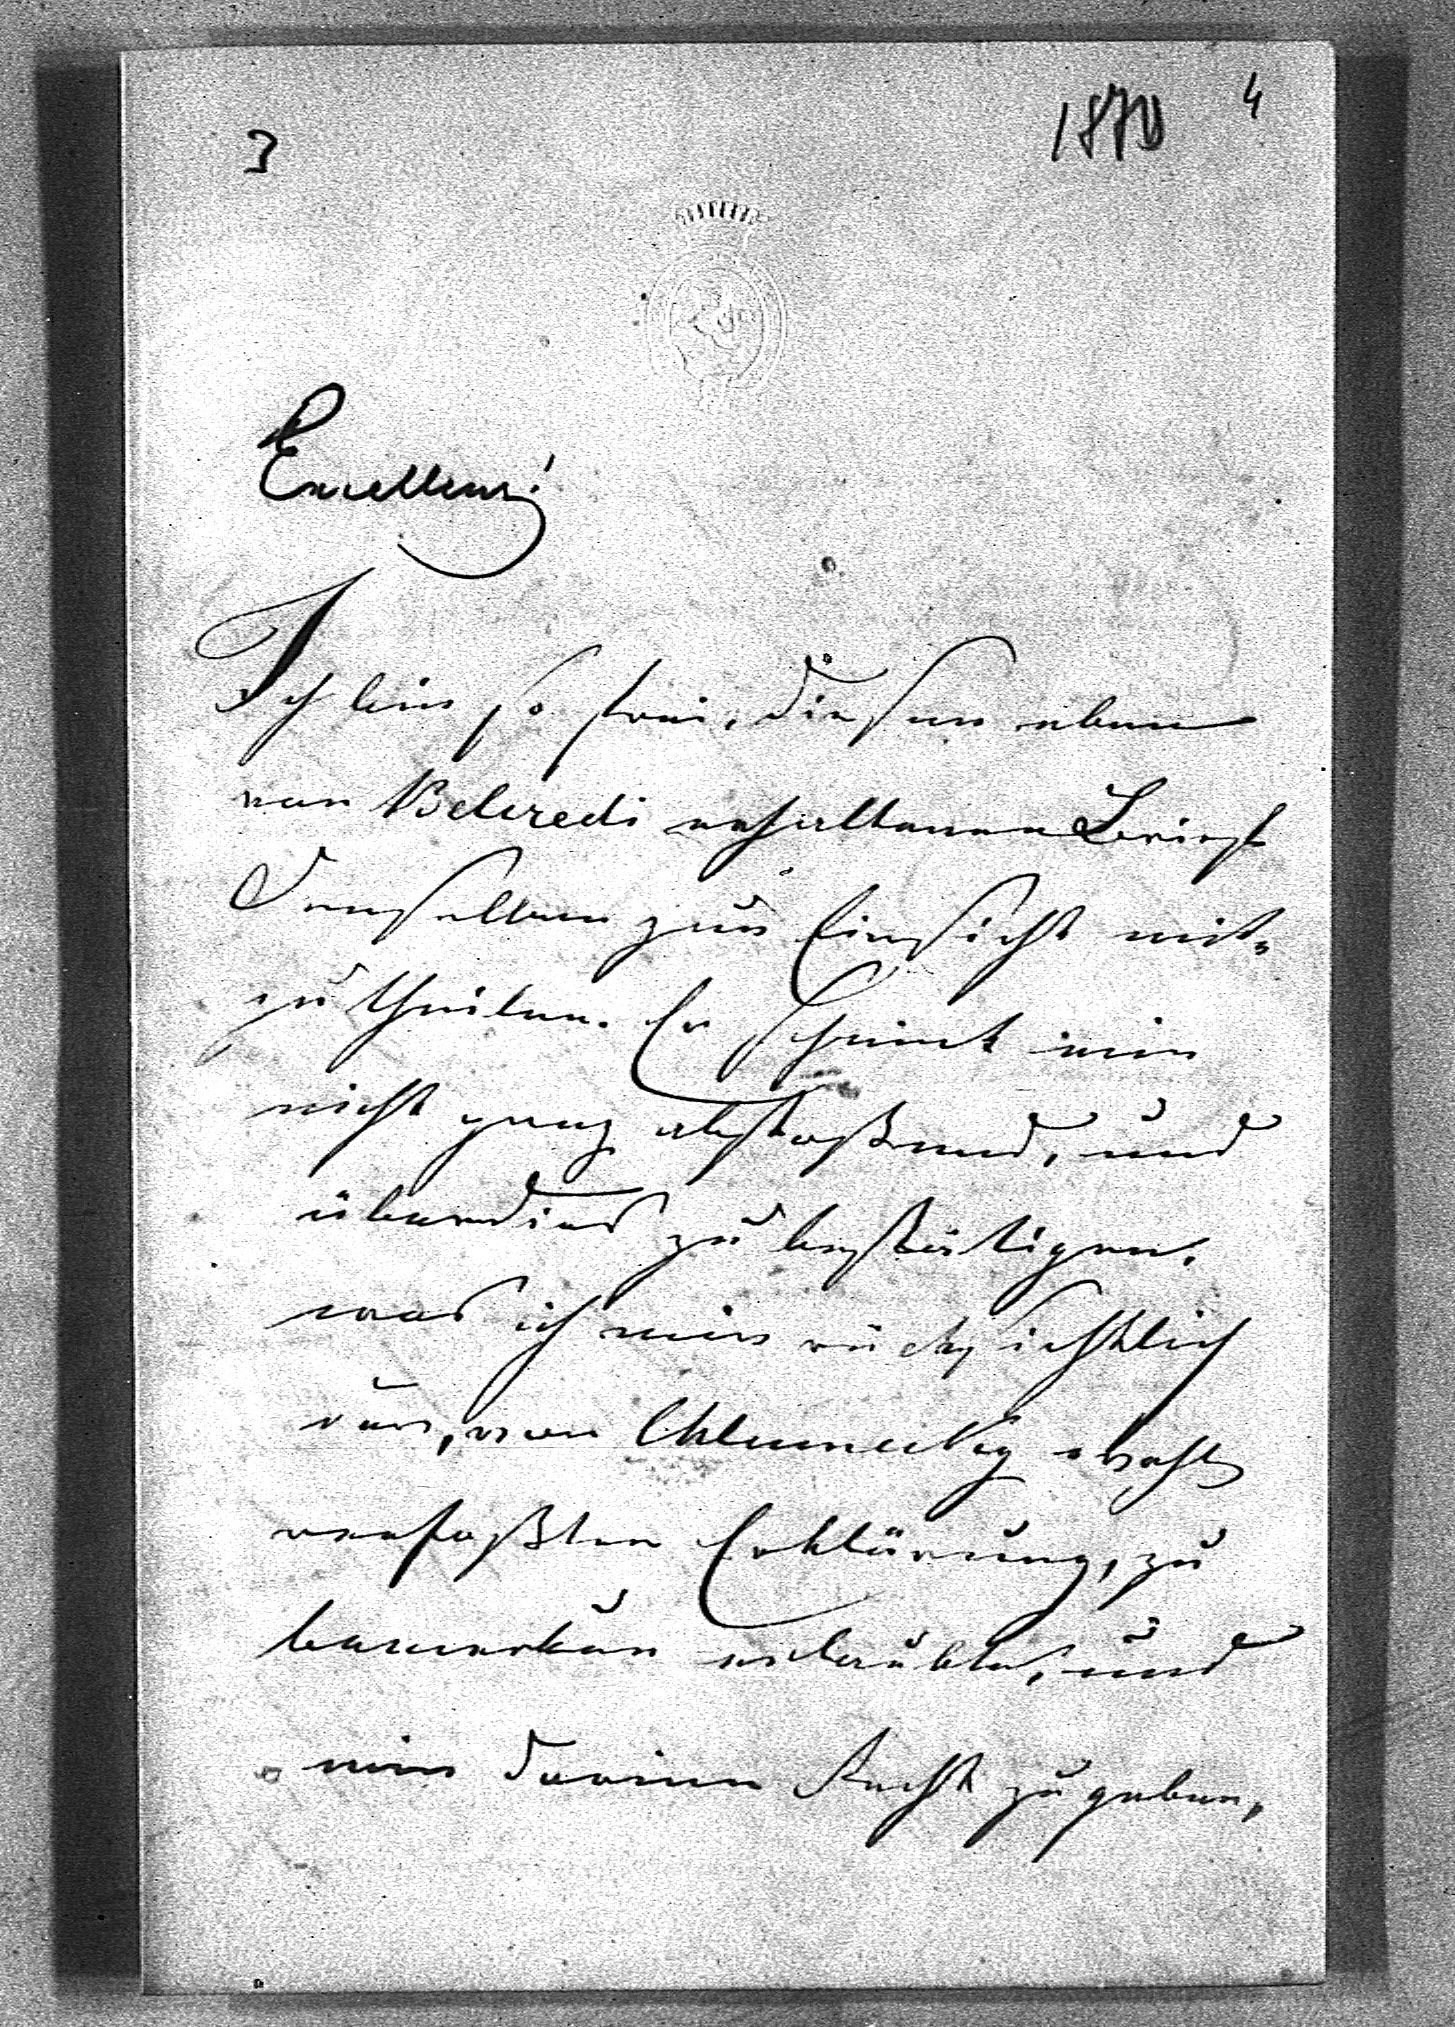 3
1870 4
Excellenz!
Ich bin so frei, diesen eben
von Belcredi erhaltenen Brief
Denselben zur Einsicht mit=
zutheilen. Er scheint mir
nicht ganz abstoßend, und
überdies zu bestätigen,
was ich mir rücksichtlich
der, von Chlumecky
verfaßten Erklärung, zu
bemerken erlaubte, und
mir darinn Recht zu geben,